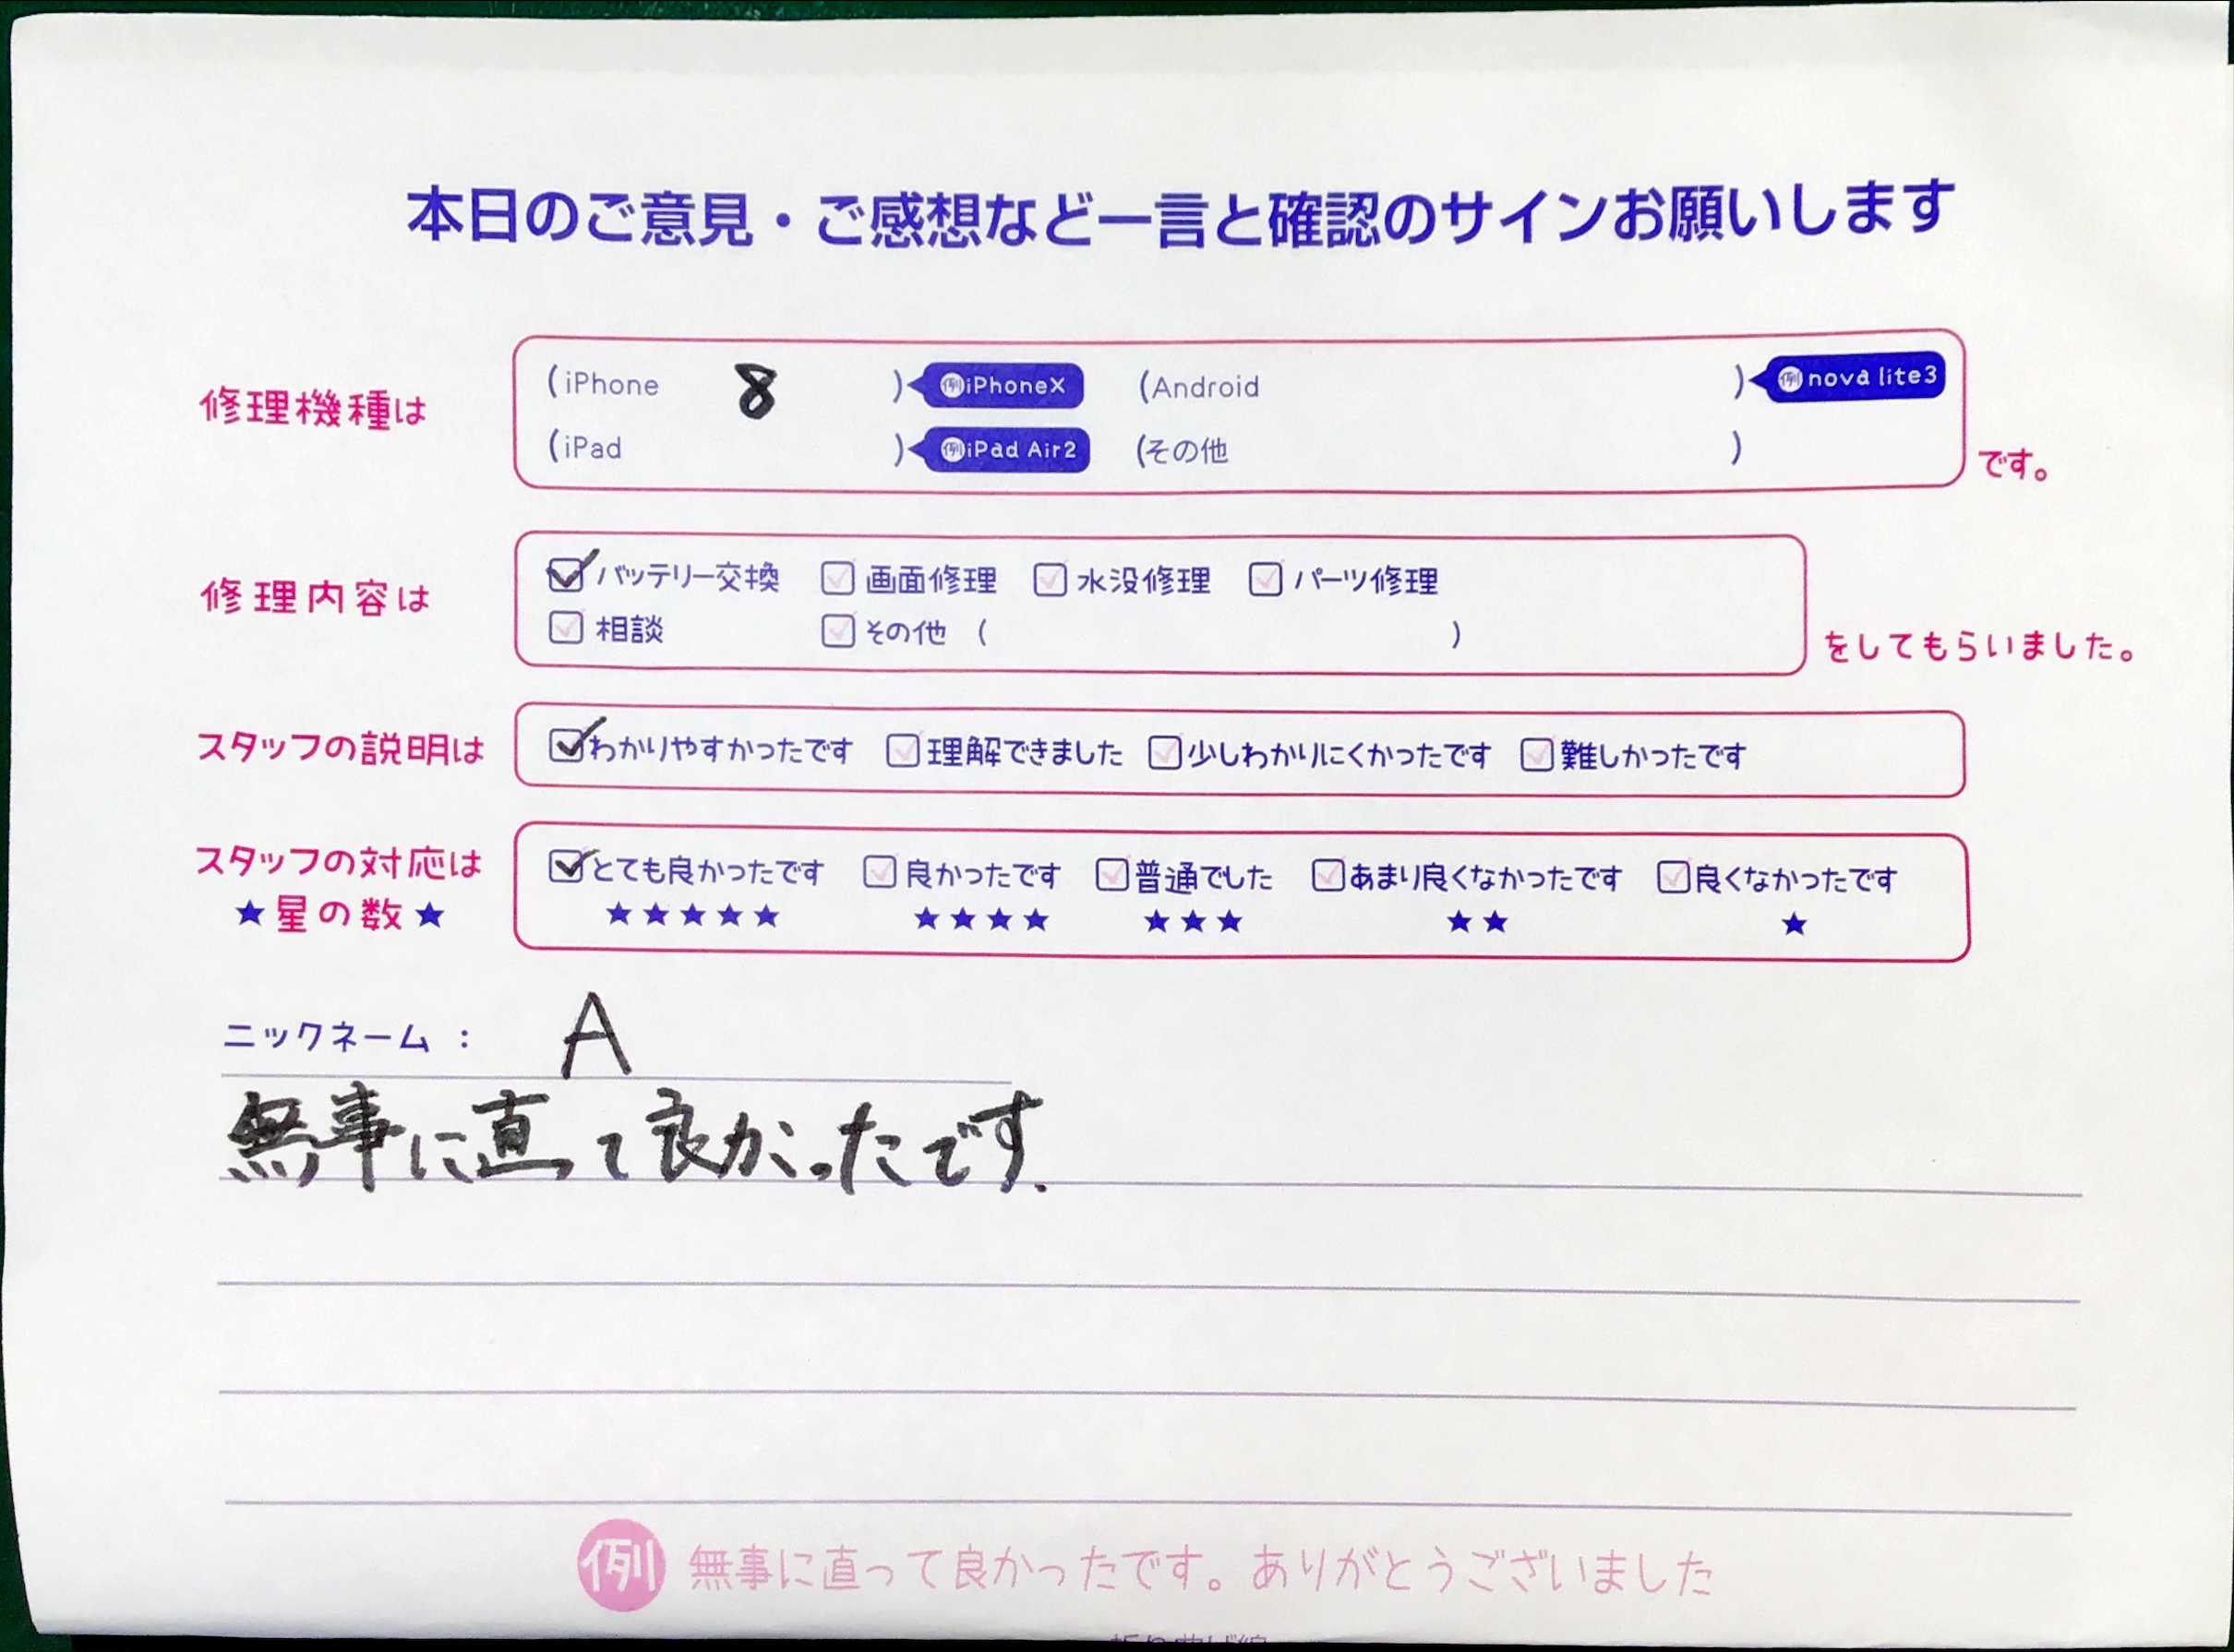 本日のご意見・ご感想など一言と確認のサインお願いします
修理機種は
(iPhone 8 ) 例iPhoneX (Android ) 例nova lite3
(iPad ) 例iPad Air2 (その他 )
です。
修理内容は
バッテリー交換 画面修理 水没修理 パーツ修理
相談 その他 ( )
をしてもらいました。
スタッフの説明は
わかりやすかったです 理解できました 少しわかりにくかったです 難しかったです
スタッフの対応は
★星の数★
とても良かったです 良かったです 普通でした あまり良くなかったです 良くなかったです
★★★★★ ★★★★ ★★★ ★★ ★
ニックネーム : A
無事に直って良かったです.
例 無事に直って良かったです。ありがとうございました